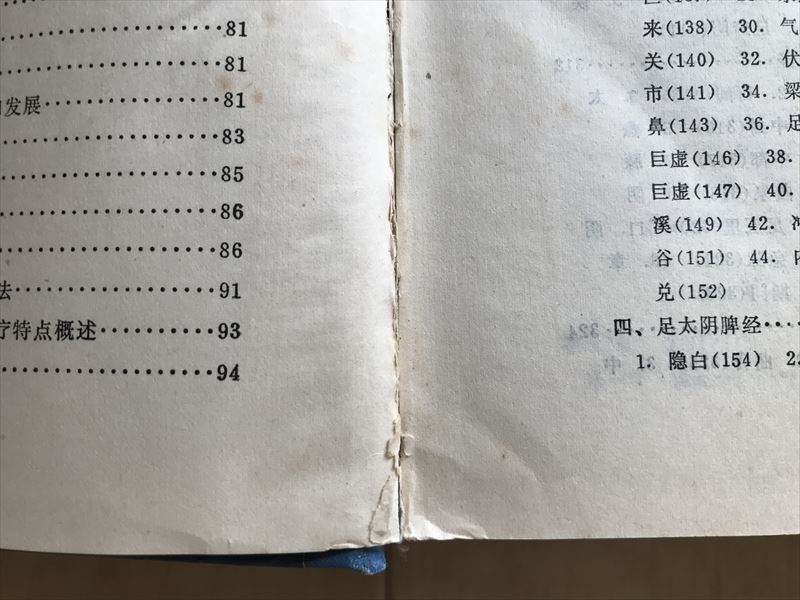 81
81
发展 81
83
85
86
86
法 91
疗特点概述 93
94
来(138) 30. 气
关(140) 32. 伏
市(141) 34. 梁
鼻(143) 36. 足
巨虚(146) 38.
巨虚(147) 40.
溪(149) 42. 冲
谷(151) 44. 内
兑(152)
四、足太阴脾经
1. 隐白(154) 2.